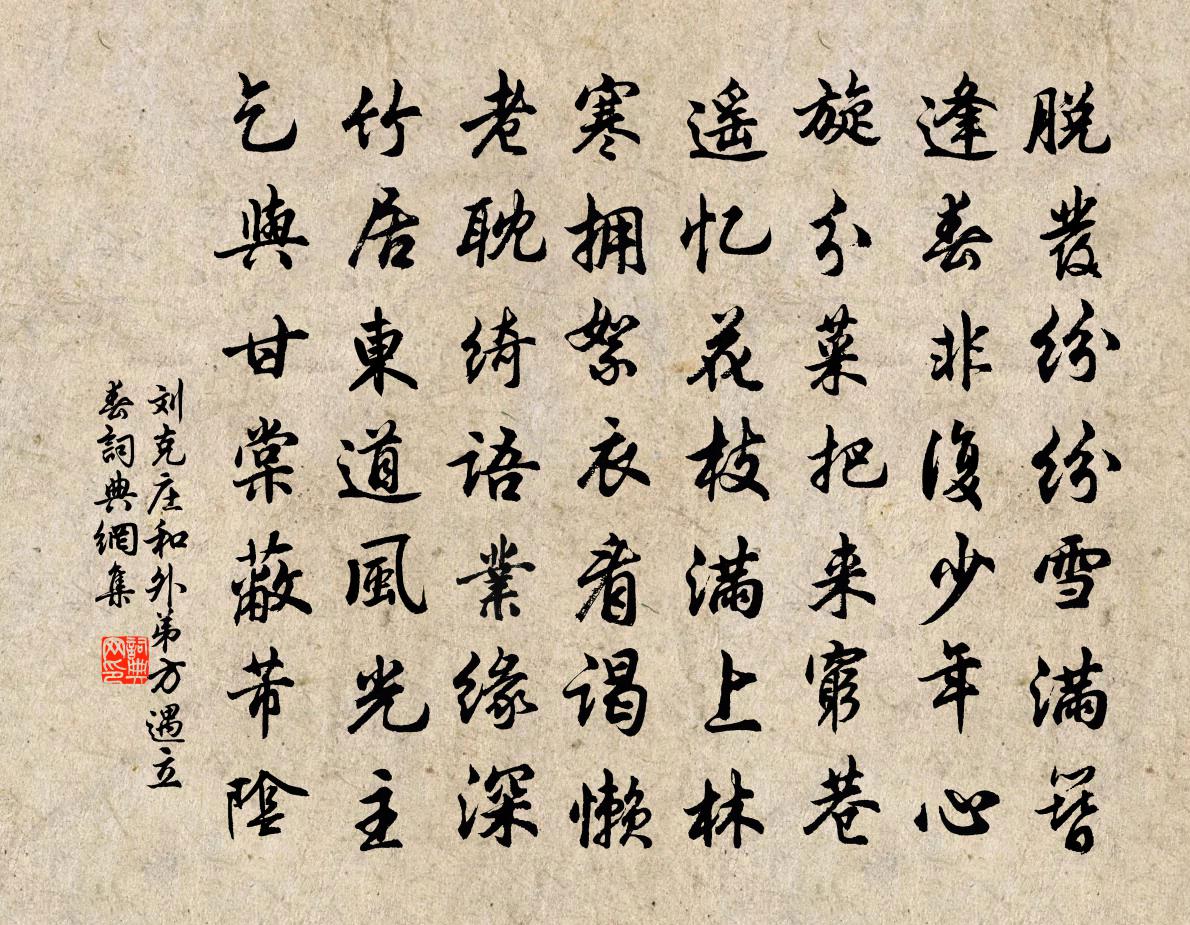 脱發紛紛雪滿簪
逢春非復少年心
旋分菜把来窮巷
遥忆花枝滿上林
寒拥絮衣看谒懒
老耽绮语業缘深
竹居東道風光主
乞與甘棠蔽芾陰
刘克庄和外弟方遇立
春詞典網集
詞典
网印